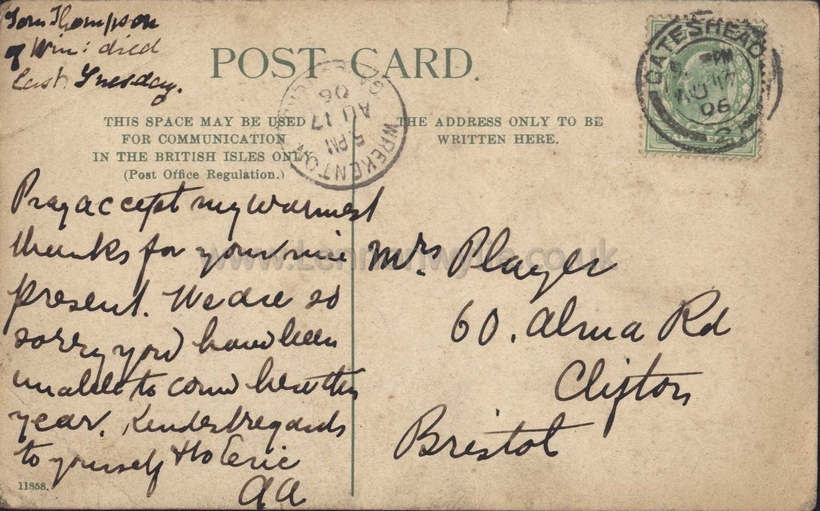 Tom Thompson
of Win: died
last Tuesday.
POST CARD.
THIS SPACE MAY BE USED
FOR COMMUNICATION
IN THE BRITISH ISLES ONLY
(Post Office Regulation.)
THE ADDRESS ONLY TO BE
WRITTEN HERE.
WREKENTON
5 PM
AU 17
06
GATESHEAD
PM
AU 17
06
Pray accept my warmest
thanks for your nice
present. We are so
sorry you have been
unable to come here this
year. Kindest regards
to yourself & to Eric
AA
Mrs Player
60. Alma Rd
Clifton
Bristol
11858.
www.Lennanwylie.co.uk